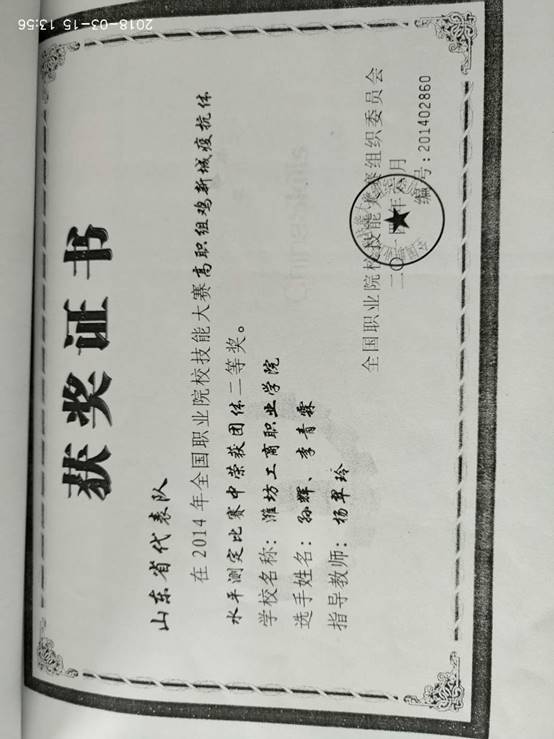 获奖证书
山东省代表队
在2014年全国职业院校技能大赛高职组鸡新城疫抗体
水平测定比赛中荣获团体二等奖。
学校名称：潍坊工商职业学院
选手姓名：孙辉、李青霖
指导教师：杨翠玲
全国职业院校技能大赛组织委员会
二〇一四年六月
编号:201402860
2018-03-15 13:56